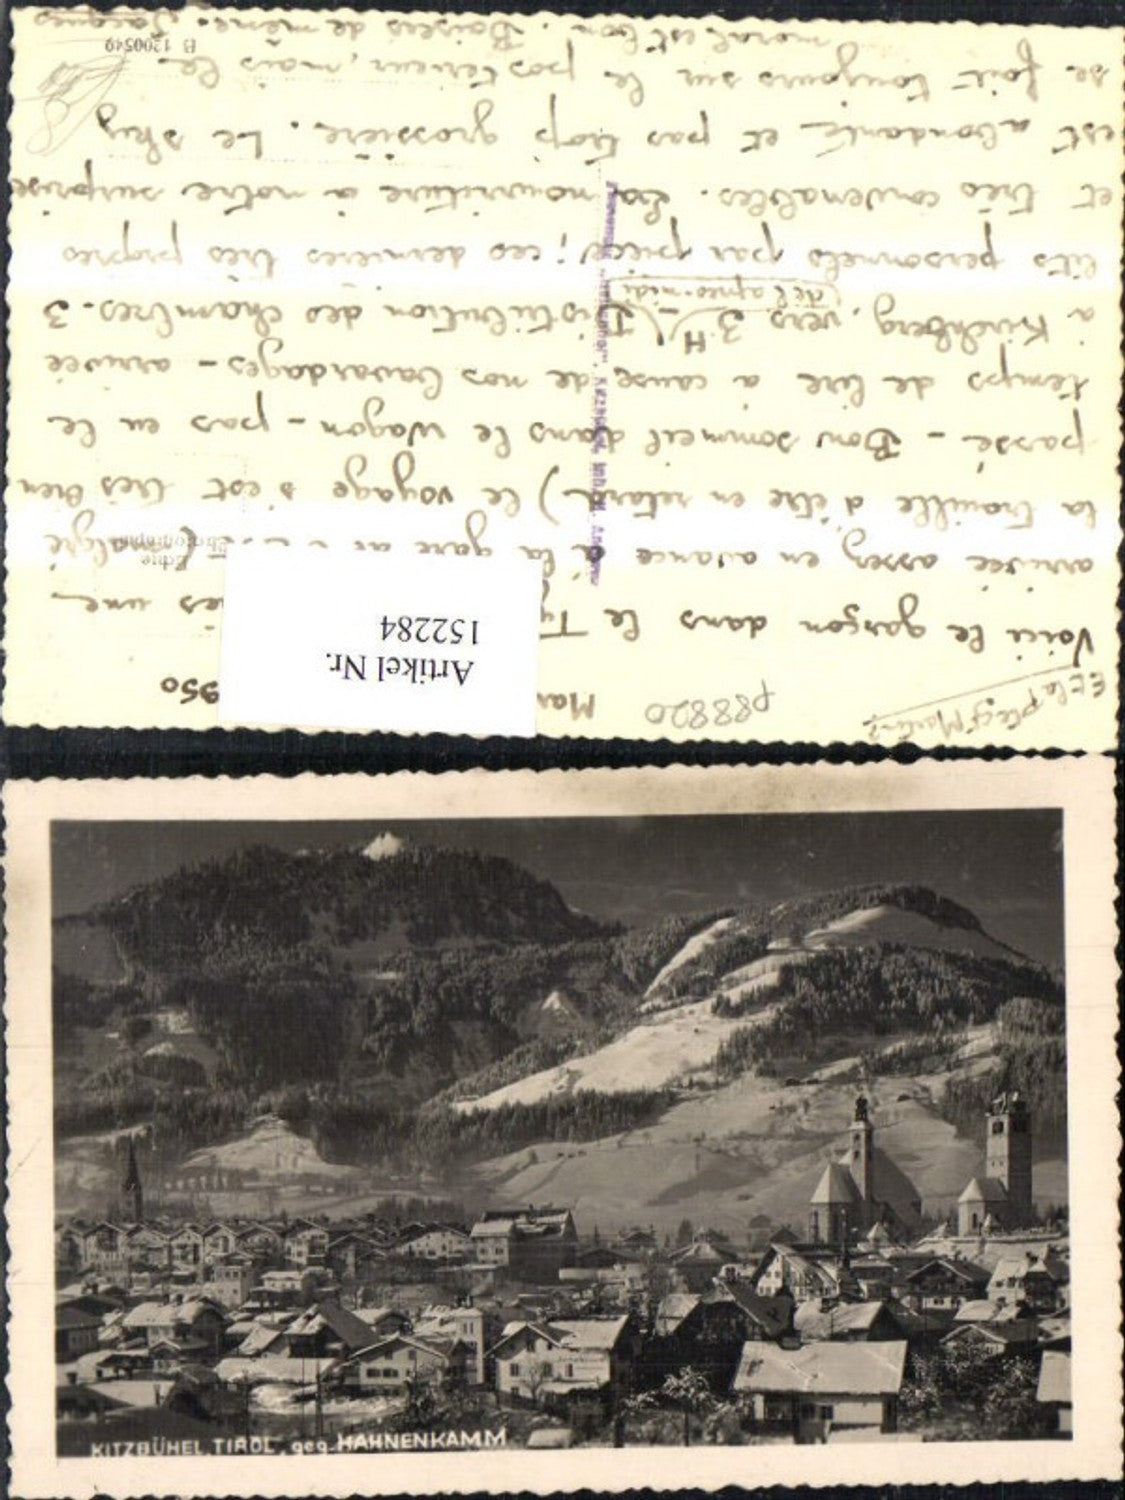 Et la
p88820
Artikel Nr.
152284
950
Voici le garçon dans le
une
arrivée assez en avance à la gare
(malgré
la trouille d'être en retard) le voyage s'est très bien
passé - Bon sommeil dans le wagon - pas eu le
temps de lire à cause de nos bavardages - arrivée
à Kirchberg, vers 3H
(de l'apres-midi)
Distribution des chambres. 3
lits personnels par pièce; ces dernières très propres
et très convenables. La nourriture à notre surprise
est abondante et pas trop grossière. Le sky
se fait toujours sur le posterieur, mais le
moral est bon. Baisers de même. Jacques
B 1200549
Echte
Photographie
KITZBÜHEL, TIROL, geg. HAHNENKAMM